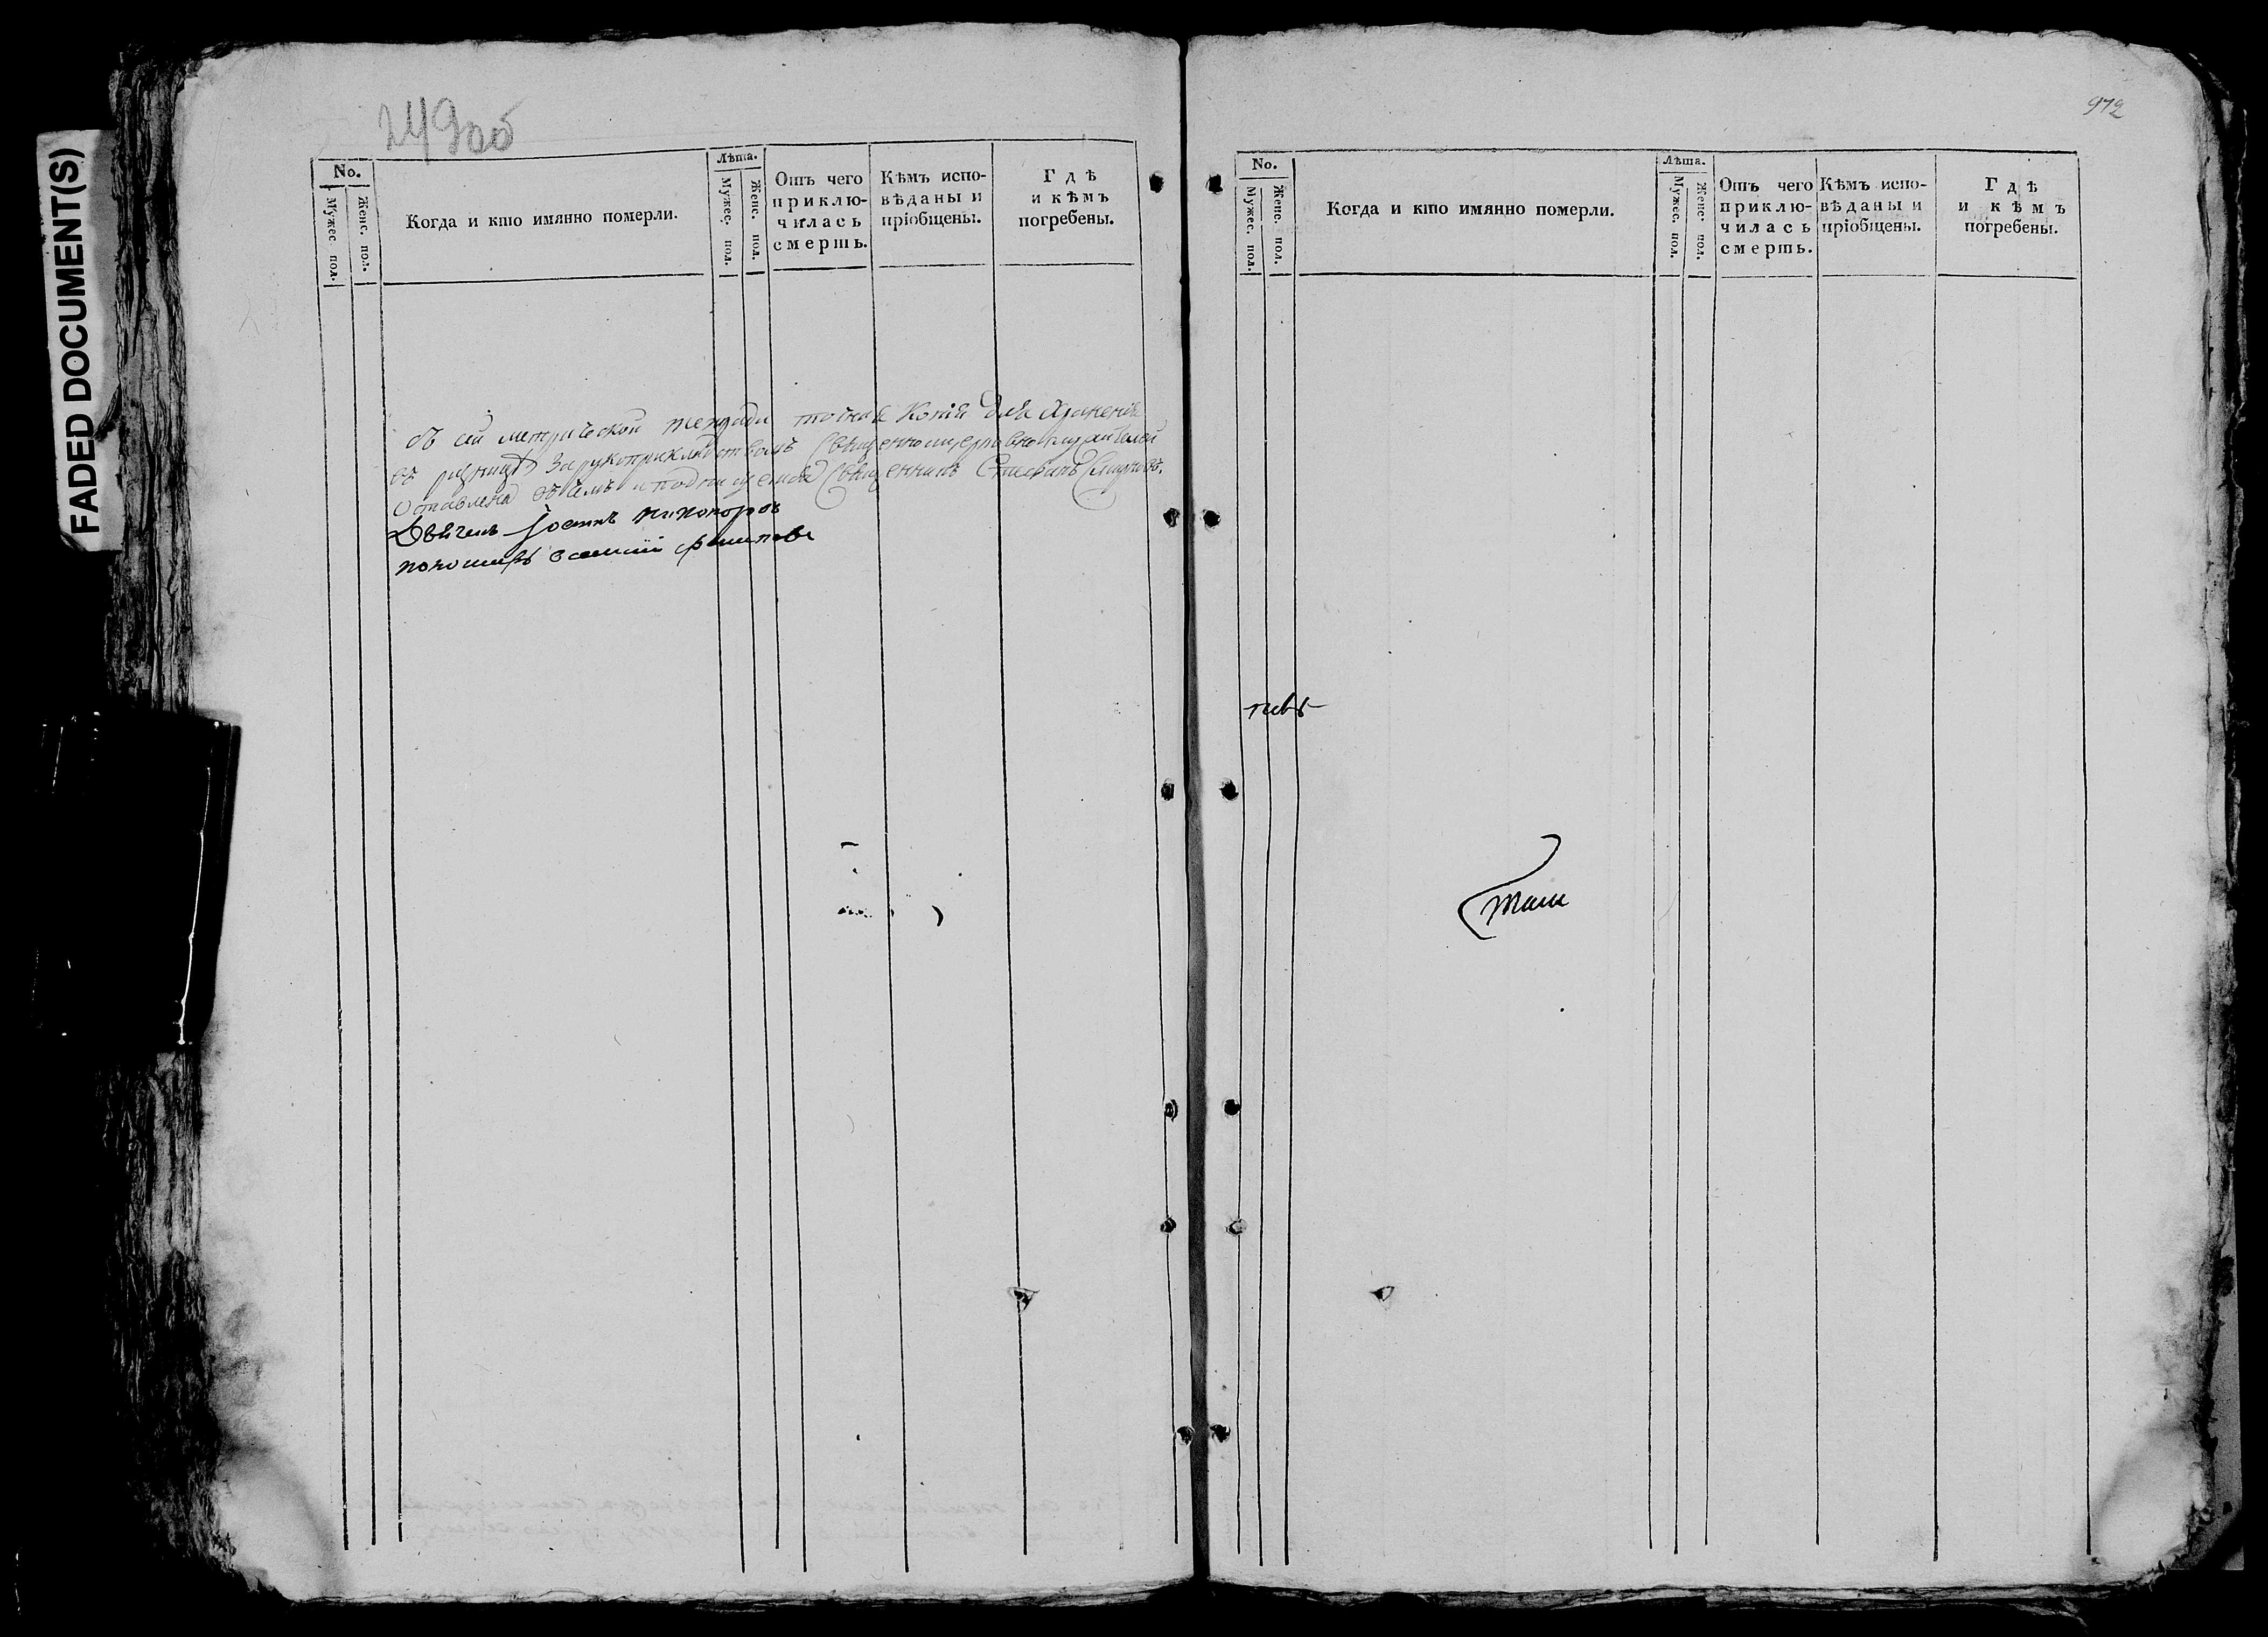 FADED DOCUMENT(S)
249об
No.
Мужес. пол.
Женс. пол.
Когда и кто имянно померли.
Лѣта.
Мужес. пол.
Женс. пол.
Отъ чего приклю-
чилась
смерть.
Кѣмъ испо-
вѣданы и
пріобщены.
Гдѣ
и кѣмъ
погребены.
съ сей метрической тетради точная копія для храненія
въ ризницѣ за рукоприкладствомъ священноцерковнослужителей
оставлена въ чемъ и подписуемся священникъ Стефанъ
никоноровъ
пономарь филиповъ
972
No.
Мужес. пол.
Женс. пол.
Когда и кто имянно померли.
Лѣта.
Мужес. пол.
Женс. пол.
Отъ чего
приклю-
чилась
смерть.
Кѣмъ испо-
вѣданы и
пріобщены.
Гдѣ
и кѣмъ
погребены.